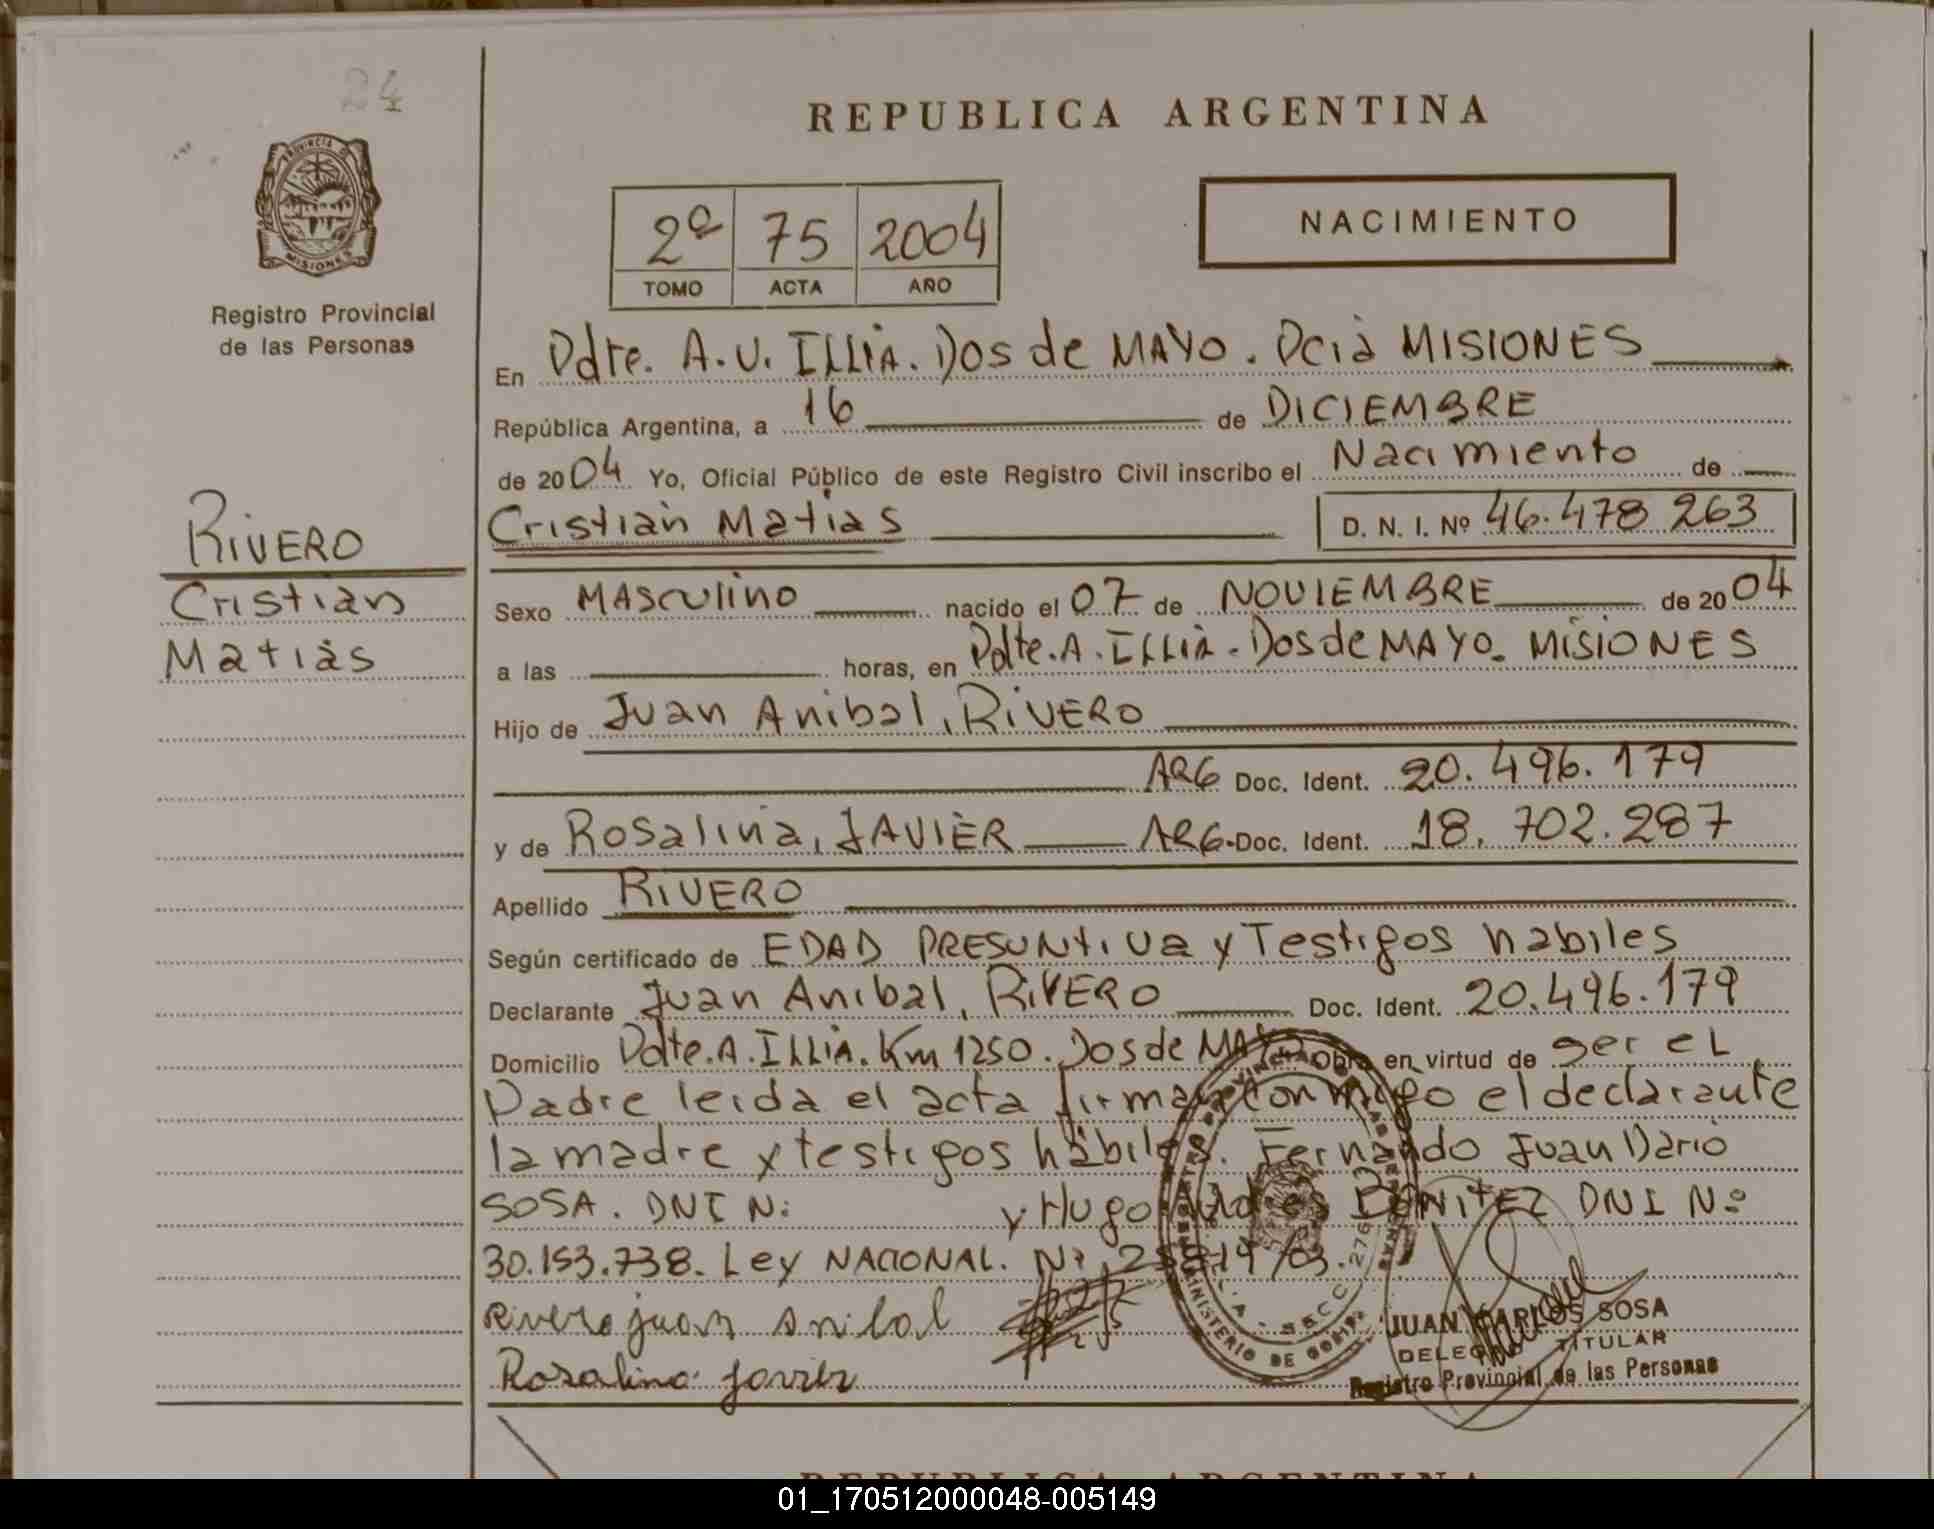 24
PROVINCIA DE
MISIONES
Registro Provincial
de las Personas
RIVERO
Cristian
Matias
REPUBLICA ARGENTINA
2ª 75 2004
TOMO ACTA AÑO
NACIMIENTO
En Pdte. A.U. ILLIA. Dos de MAYO. Pcia MISIONES
República Argentina, a 16 de DICIEMBRE
de 2004 Yo, Oficial Público de este Registro Civil inscribo el Nacimiento de
Cristian Matias D. N. I. Nº 46.478 263
Sexo MASCulino nacido el 07 de NOVIEMBRE de 2004
a las horas, en Pdte. A. ILLIA. Dos de MAYO. MISIONES
Hijo de Juan Anibal, RIVERO
ARG Doc. Ident. 20.496.179
y de Rosalina, JAVIER ARG. Doc. Ident. 18.702.287
Apellido RIVERO
Según certificado de EDAD PRESUNTIVA y Testigos habiles
Declarante Juan Anibal, RIVERO Doc. Ident. 20.496.179
Domicilio Pdte. A. ILLIA. Km 1250. Dos de MAYO Obra en virtud de ser el
Padre leida el acta firman conmigo el declarante
la madre y testigos habiles. Fernando Juan Dario
SOSA. DNI N: y Hugo BENITEZ DNI Nº
30.153.738. Ley NACIONAL. Nº /03.
Rivero juan anibal
Rosalina javier
JUAN CARLOS SOSA
DELEGADO TITULAR
Registro Provincial de las Personas
MINISTERIO DE GOB
REPUBLICA ARGENTINA
01_170512000048-005149